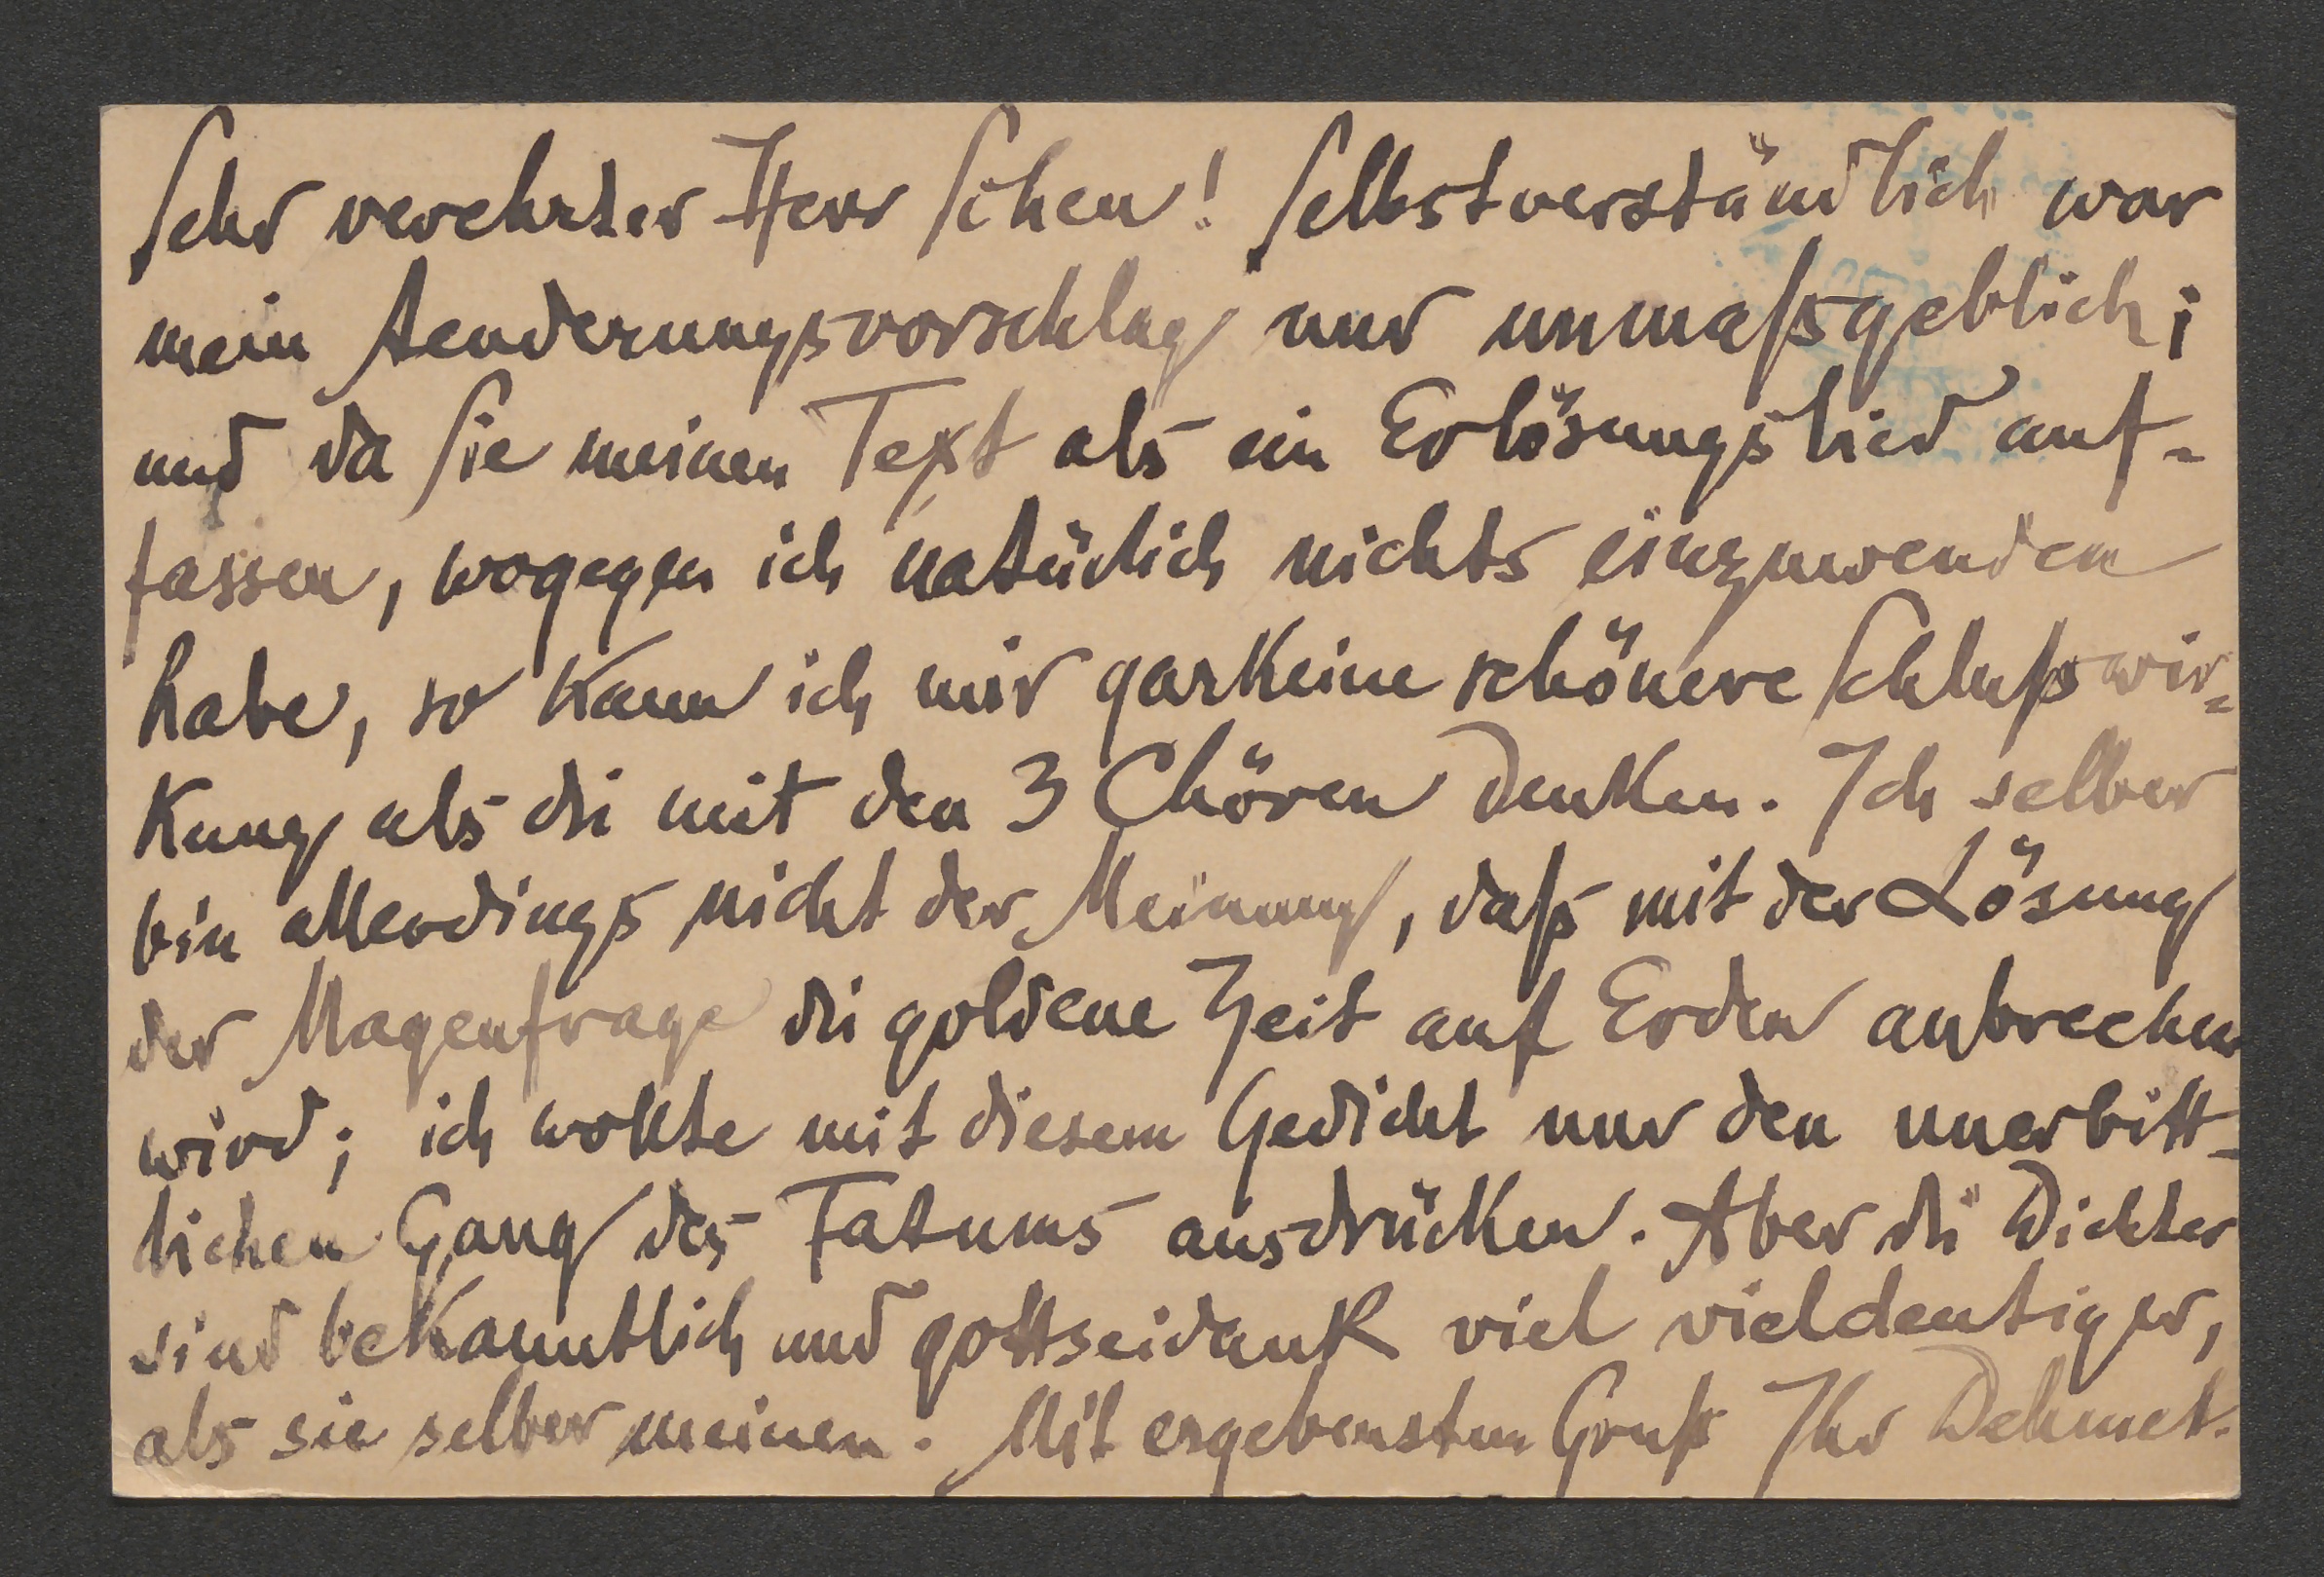 Sehr verehrter Herr Scheu! Selbstverständlich war
mein Aenderungsvorschlag nur unmaßgeblich;
und da Sie meinen Text als ein Erlösungslied auf-
fassen, wogegen ich natürlich nichts einzuwenden
habe, so kann ich mir garkeine schönere Schlußwir-
kung als di mit den 3 Chören denken. Ich selber
bin allerdings nicht der Meinung, daß mit der Lösung
der Magenfrage di goldene Zeit auf Erden anbrechen
wird; ich wollte mit diesem Gedicht nur den unerbitt-
lichen Gang des Fatums ausdrücken. Aber di Dichter
sind bekanntlich und gottseidank viel vieldeutiger,
als sie selber meinen. Mit ergebenstem Gruß Ihr Dehmel.